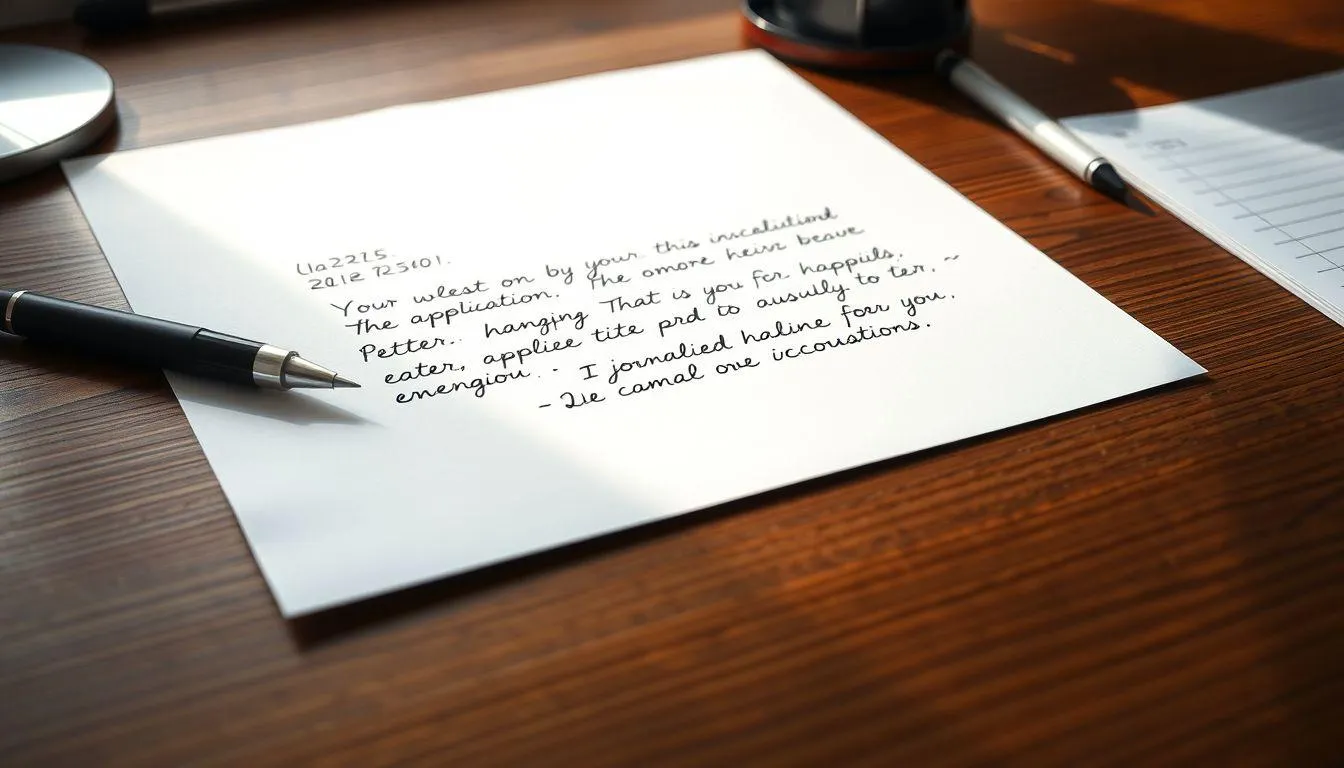 Ua2275.
2012 725101.
Your wlest on by your this inscelutiond
the application. The omore heisr beave
Petter.. hanging That is you fer happiils.
eater, appliee tite prd to ausully to ter. ~
enengiou.. - I jornalied haline foer you.
- 2ie camal ove iccoustions.